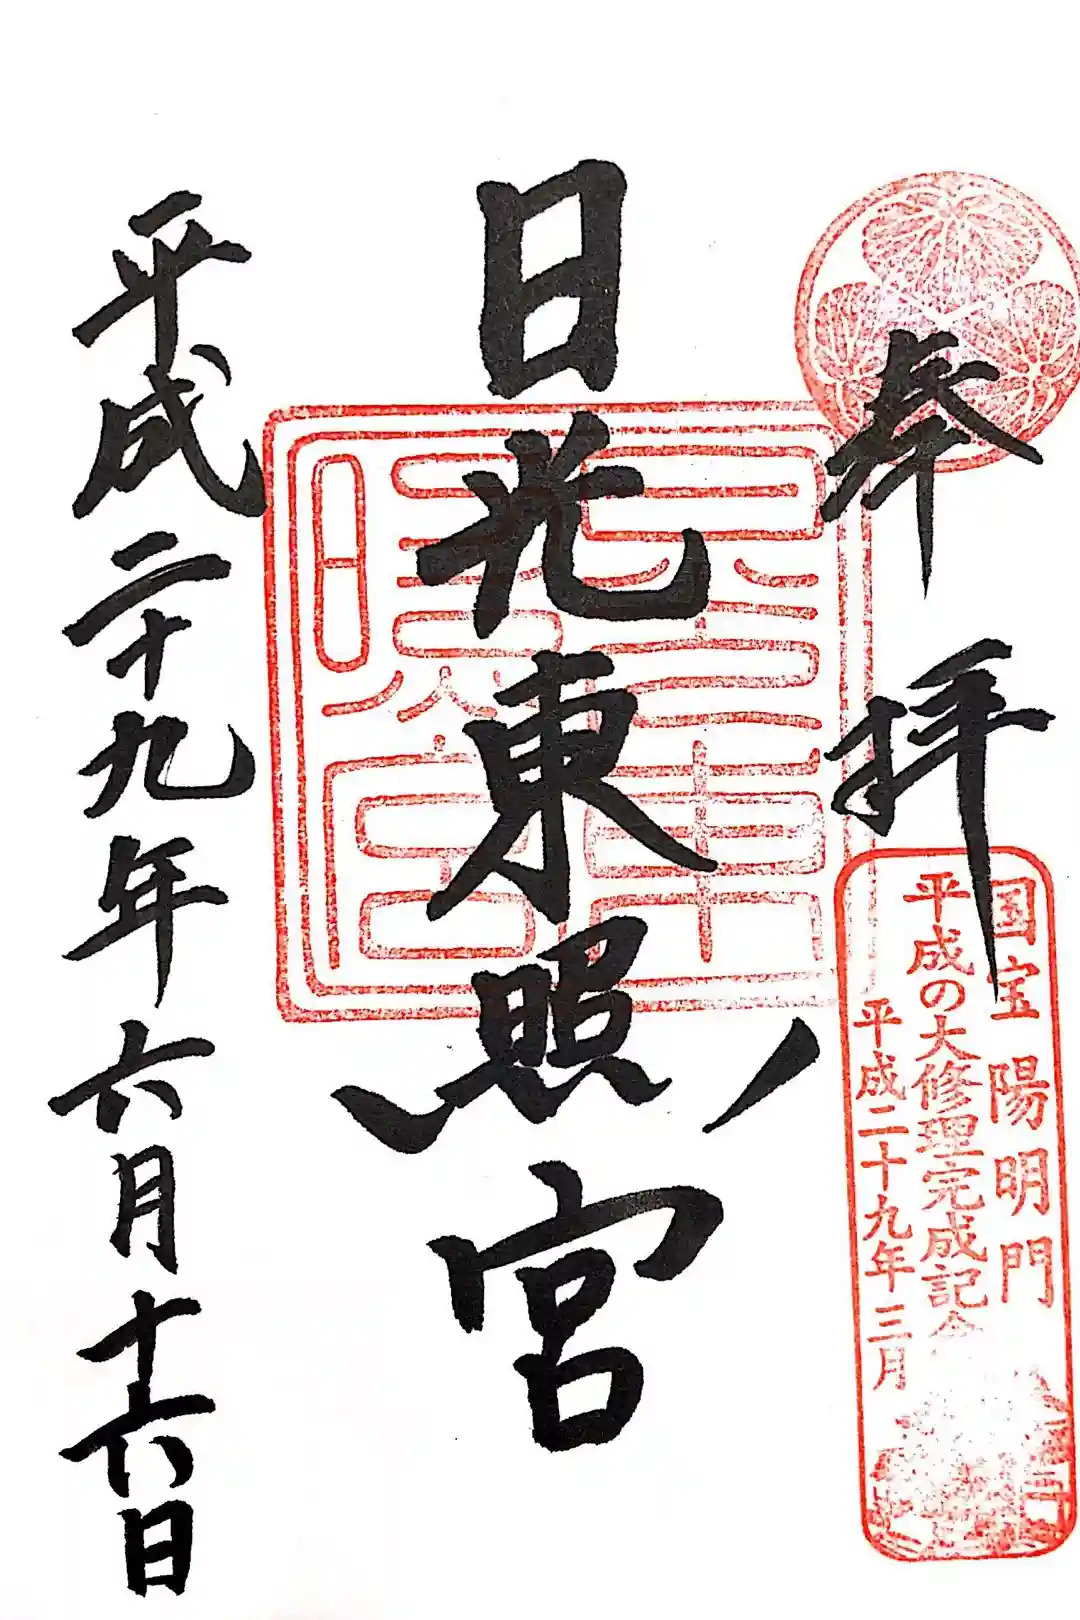 奉拝
国宝 陽明門
平成の大修理完成記念
平成二十九年三月
日光東照宮
東照宮
平成二十九年六月十六日